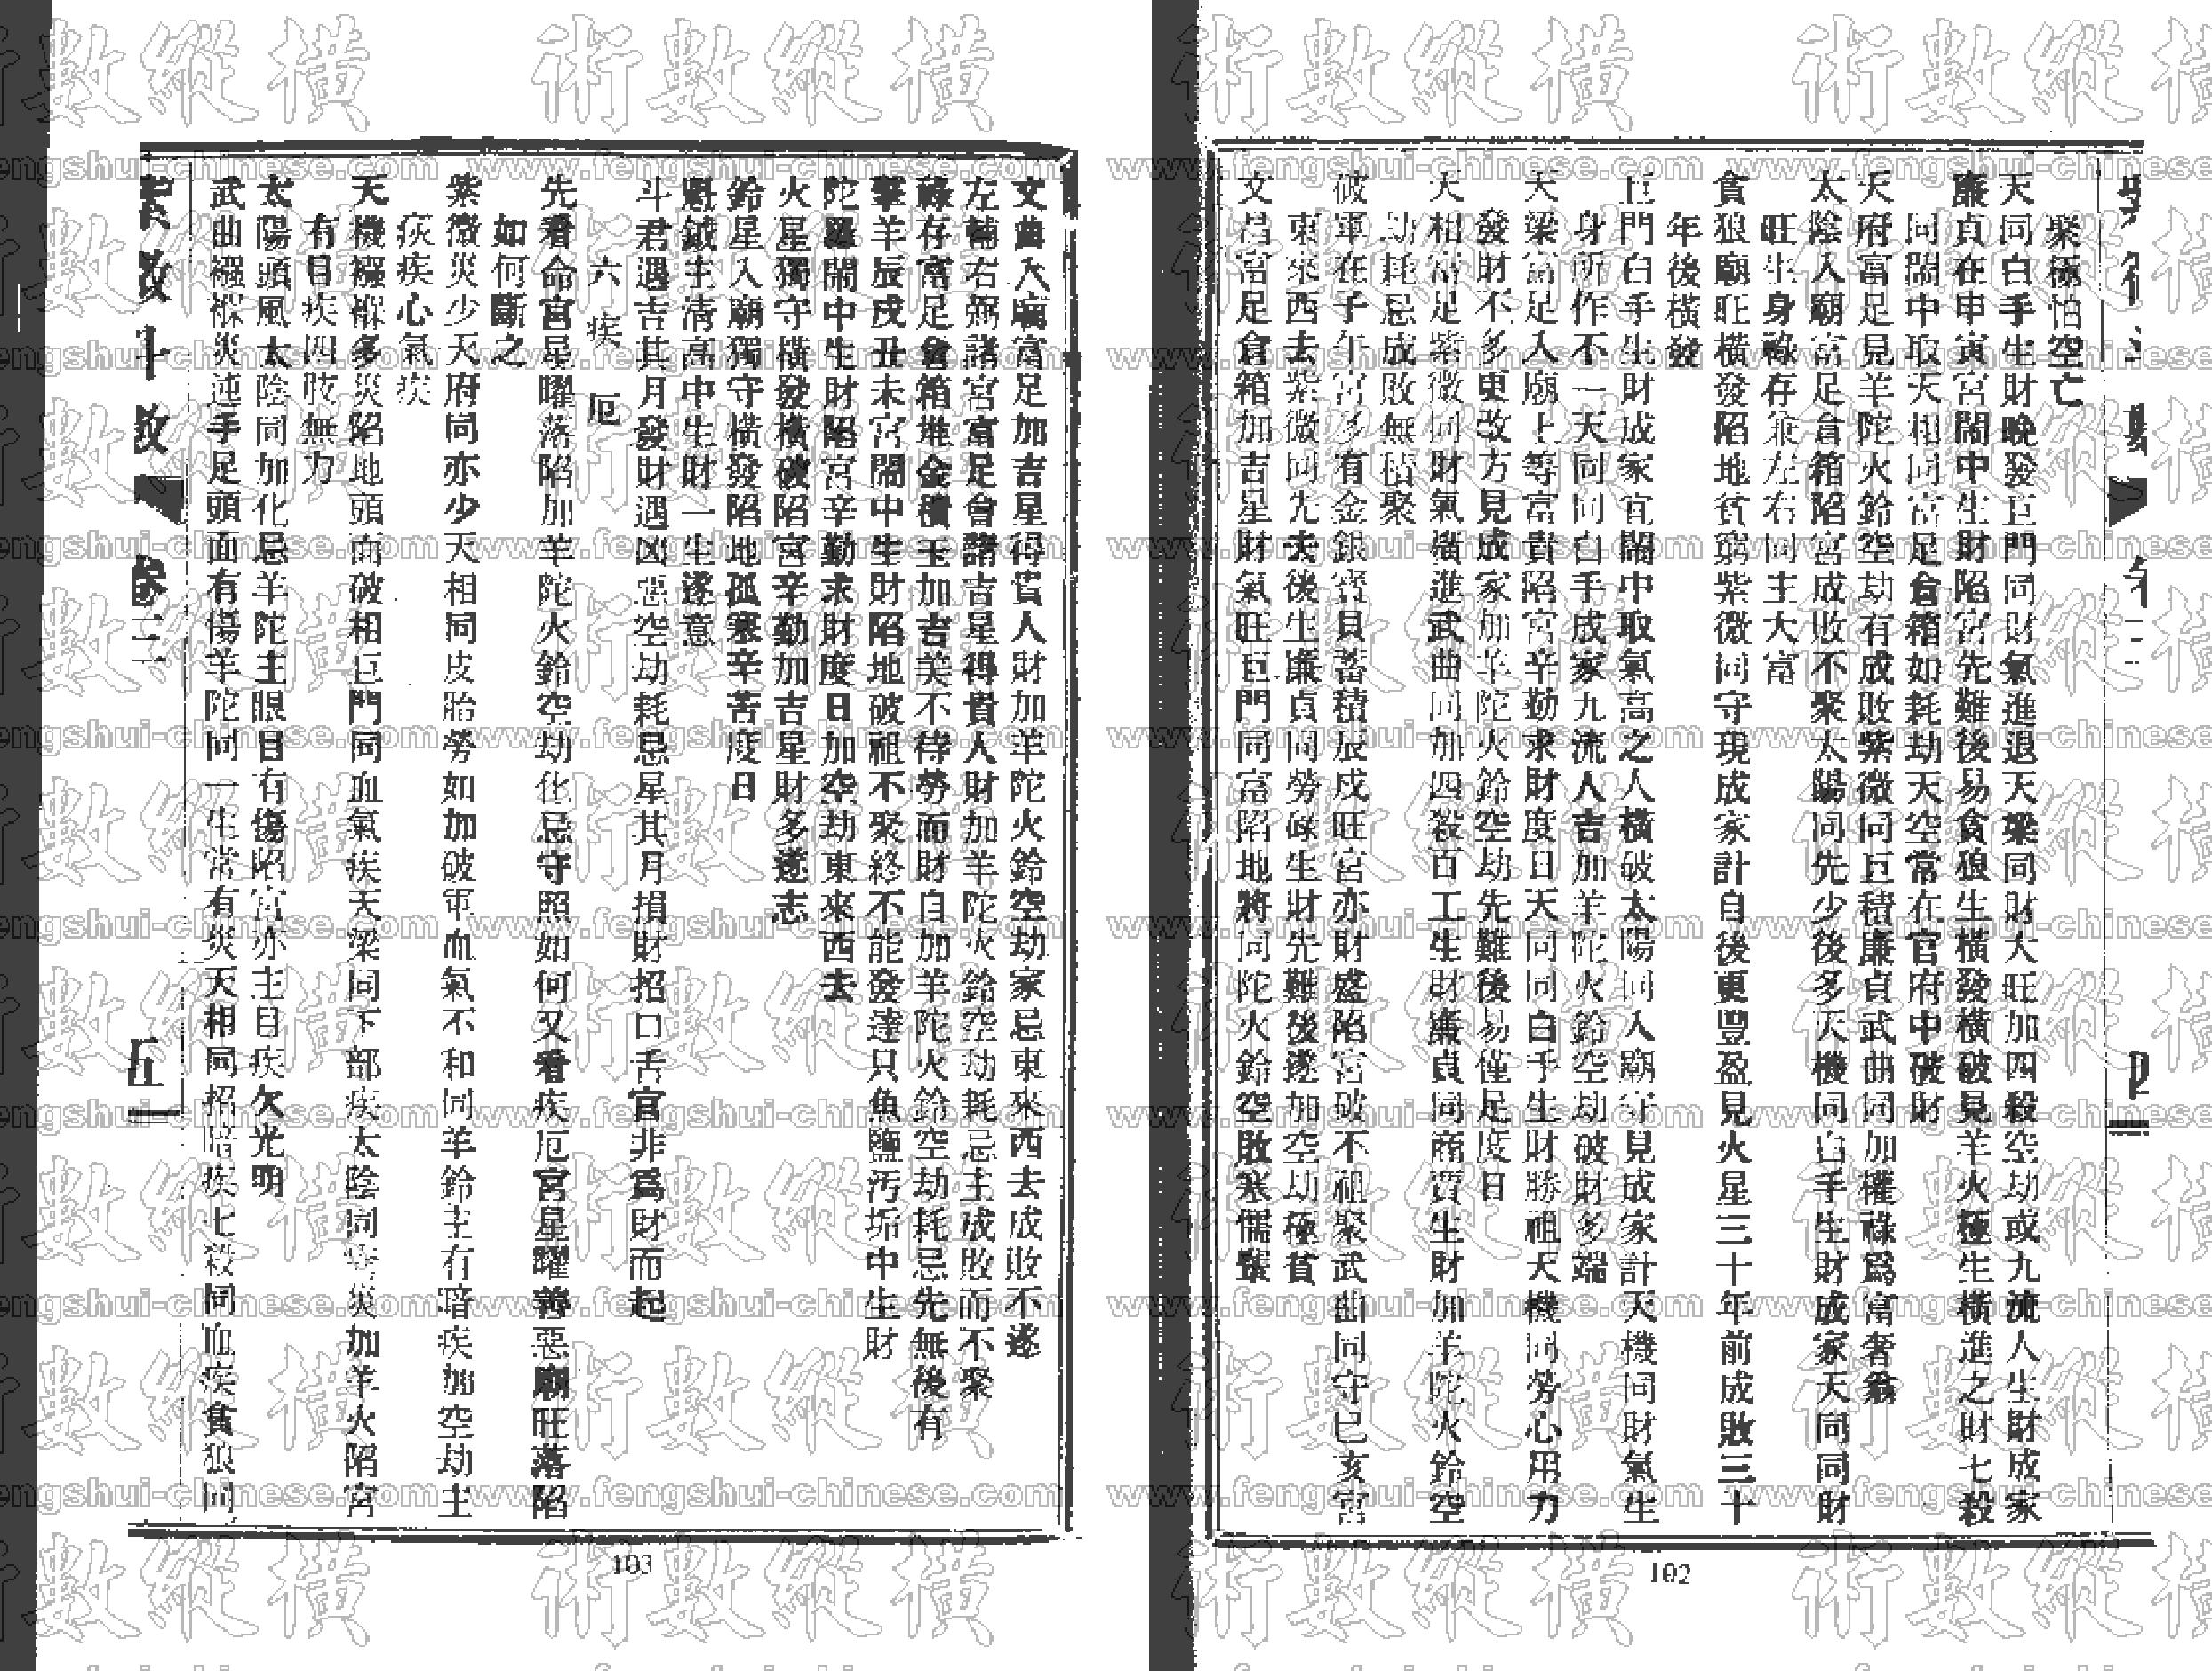 聚極怕空亡
天同白手生財晚發巨門同財氣進退天梁同財大旺加四殺空劫或九流人生財成家
廉貞在申寅宮鬧中生財陷宮先難後易貪狼生橫發橫破見羊火極生橫進之財七殺
同鬧中取天相同富足倉箱如耗劫天空常在官府中破財
天府富足見羊陀火鈴空劫有成敗紫微同巨積廉貞武曲同加權祿爲富奢翁
太陰入廟富足倉箱陷宮成敗不聚太陽同先少後多天機同白手生財成家天同同財
旺生身祿存兼左右同主大富
貪狼廟旺橫發陷地貧窮紫微同守現成家計自後更豐盈見火星三十年前成敗三十
年後橫發
巨門白手生財成家宜鬧中取氣高之人橫破太陽同入廟守見成家計天機同財氣生
身所作不一天同同白手成家九流人吉加羊陀火鈴空劫破財多端
天梁富足入廟上等富貴陷宮辛勤求財度日天同同白手生財勝祖天機同勞心用力
發財不多更改方見成家加羊陀火鈴空劫先難後易僅足度日
天相富足紫微同財氣橫進武曲同加四殺百工生財廉貞同商賈生財加羊陀火鈴空
劫耗忌成敗無積聚
破軍在子午宮多有金銀寶貝蓄積辰戌旺宮亦財盛陷宮破不祖聚武曲同守巳亥宮
東來西去紫微同先去後生廉貞同勞碌生財先難後遂加空劫極貧
文昌富足倉箱加吉星財氣旺巨門同富陷地將同陀火鈴空敗寒儒輩
四
102
文曲入廟富足加吉星得貴人財加羊陀火鈴空劫家忌東來西去成敗不遂
左輔右弼諸宮富足會諸吉星得貴人財加羊陀火鈴空劫耗忌主成敗而不聚
祿存富足倉箱堆金積玉加吉美不待勞而財自加羊陀火鈴空劫耗忌先無後有
擎羊辰戌丑未宮鬧中生財陷地破祖不聚終不能發達只魚鹽污垢中生財
陀羅鬧中生財陷宮辛勤求財度日加空劫東來西去
火星獨守橫發橫破陷宮辛勤加吉星財多遂志
鈴星入廟獨守橫發陷地孤寒辛苦度日
魁鉞主清高中生財一生遂意
斗君遇吉其月發財遇凶惡空劫耗忌星其月損財招口舌官非爲財而起
六疾厄
先看命宮星曜落陷加羊陀火鈴空劫化忌守照如何又看疾厄宮星曜善惡廟旺落陷
如何斷之
紫微災少天府同亦少天相同皮胎勞如加破軍血氣不和同羊鈴主有暗疾加空劫主
疾疾心氣疾
天機襁褓多災陷地頭面破相巨門同血氣疾天梁同下部疾太陰同瘡災加羊火陷宮
有目疾四肢無力
太陽頭風太陰同加化忌羊陀主眼目有傷陷宮亦主目疾欠光明
武曲襁褓災迍手足頭面有傷羊陀同一生常有災天相同招暗疾七殺同血疾貪狼同
紫微斗數 卷三
五
103